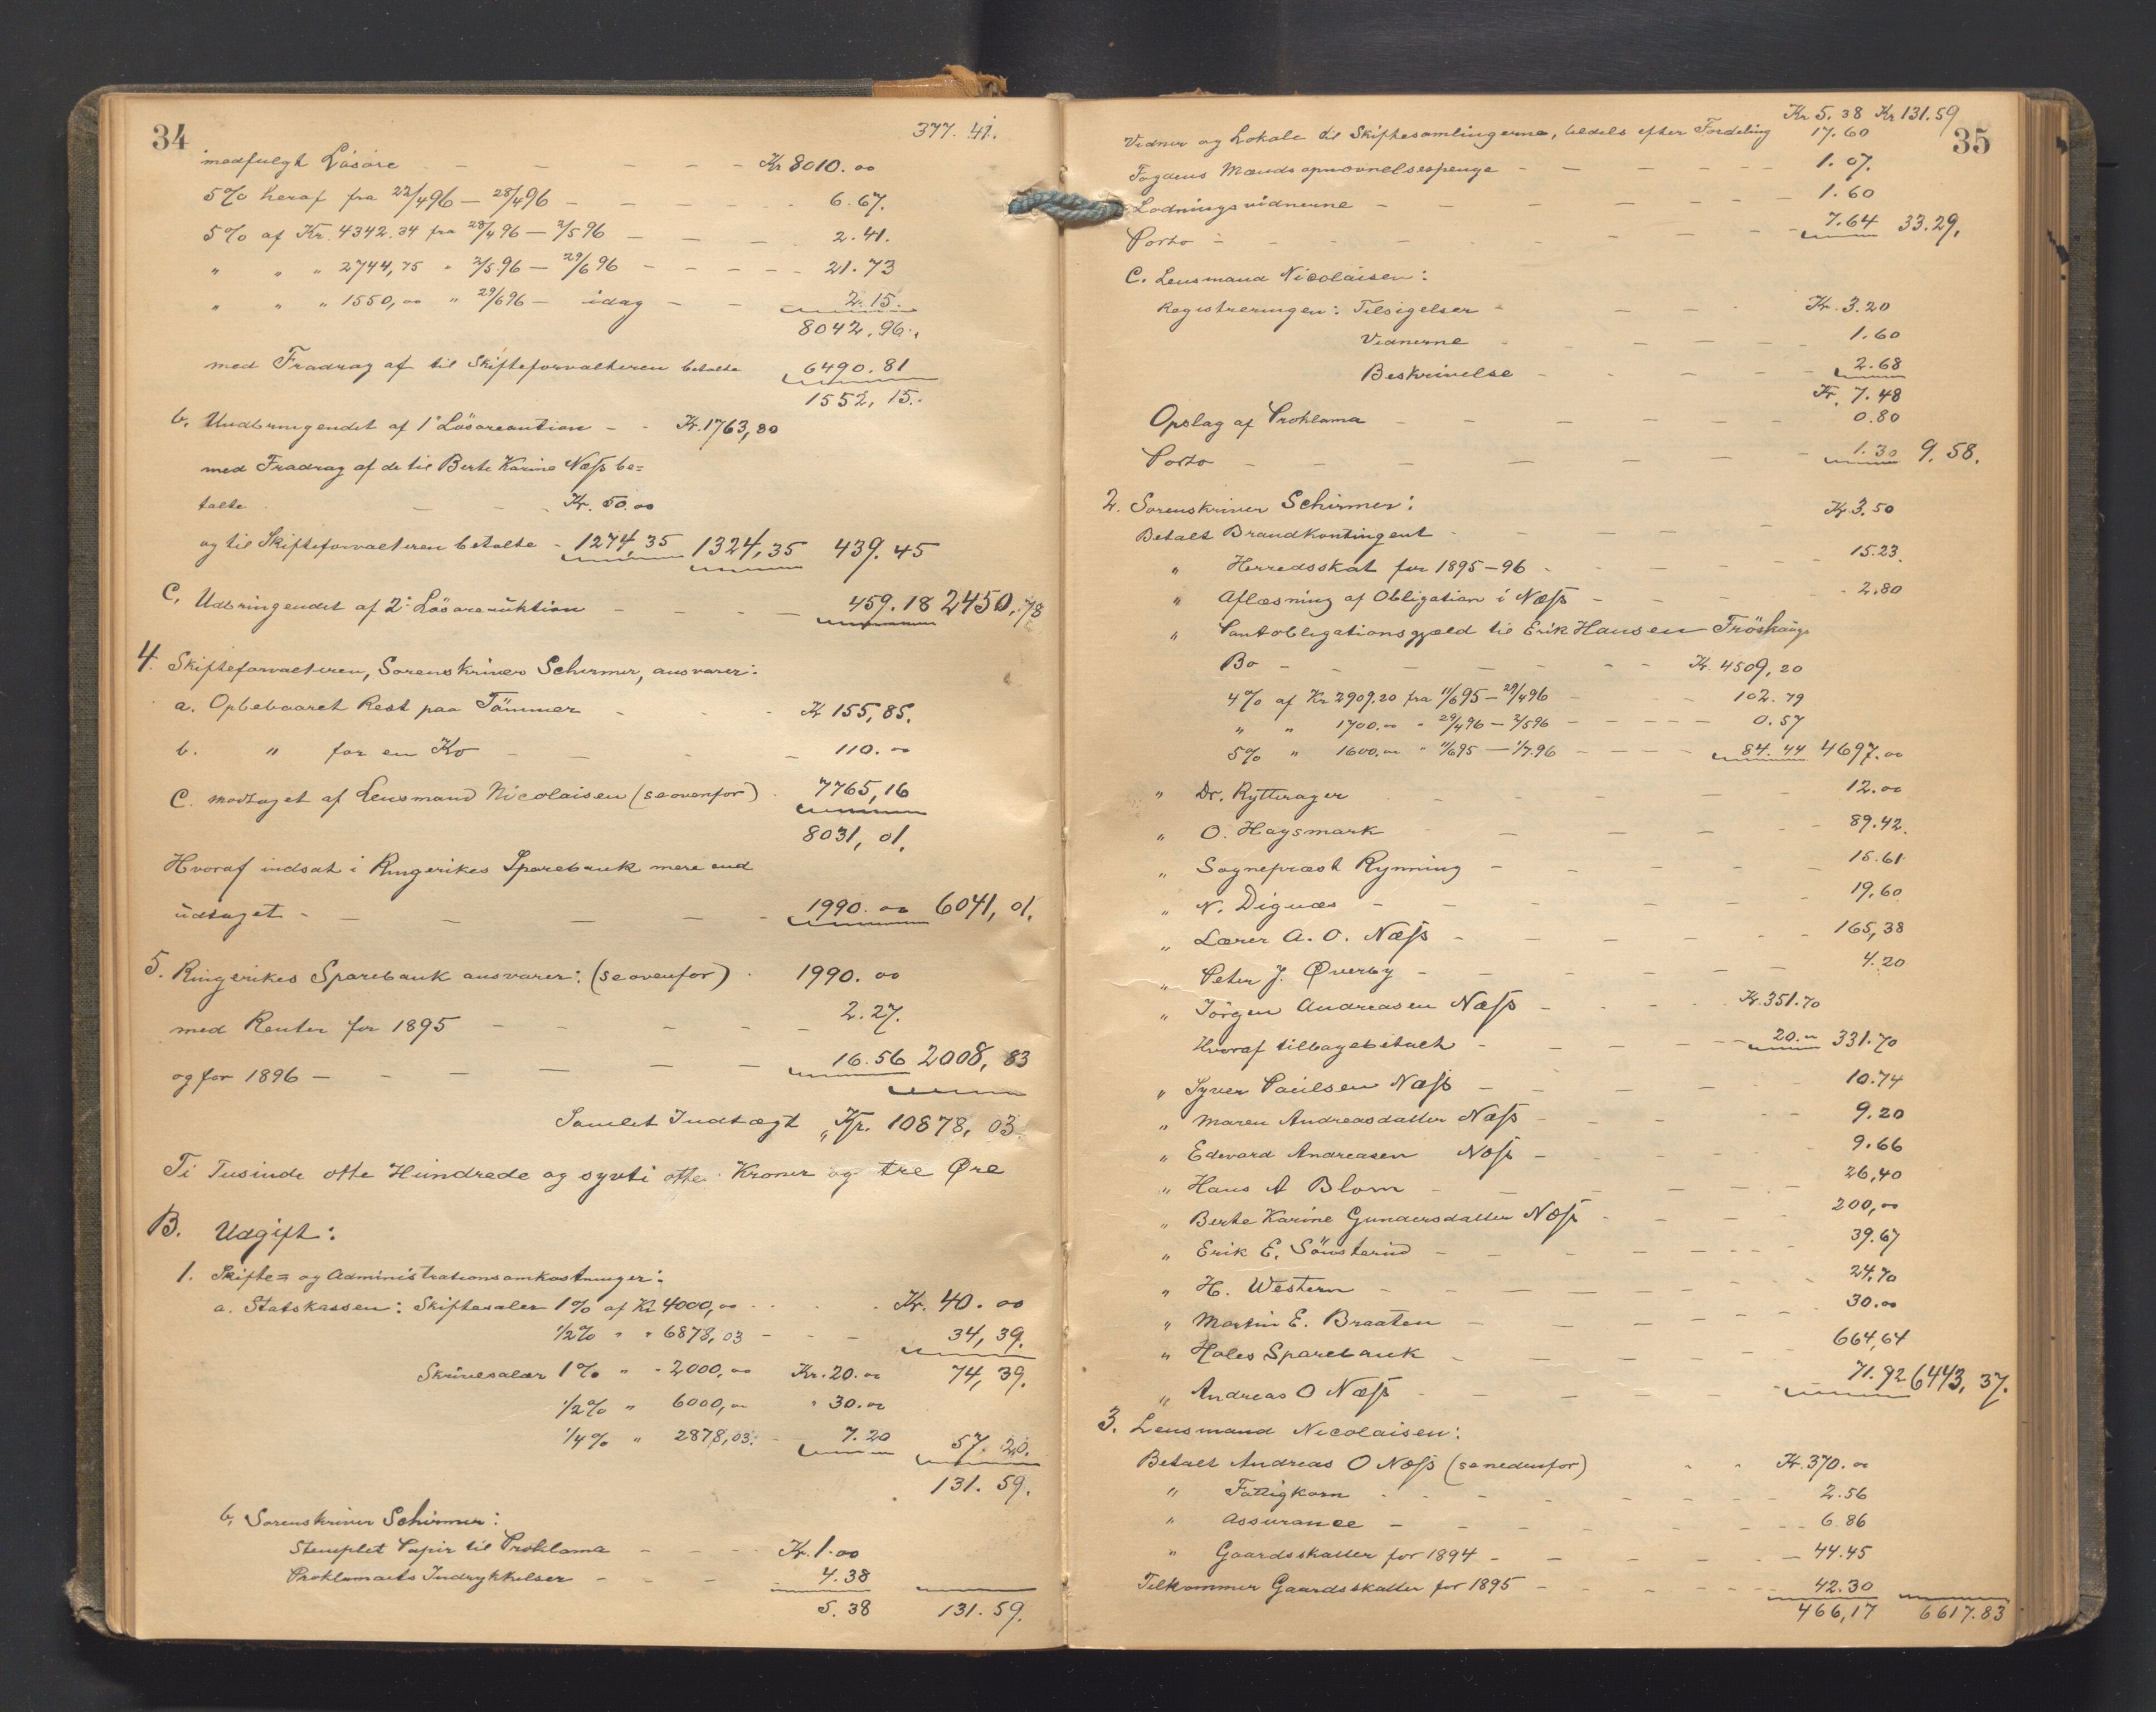 34
377. 41.
medfulgt Lösöre - - - - - Kr 8010.00
5% heraf fra 22/4 96 — 28/4 96 - - - - - 6.67.
5% af Kr. 4342.34 fra 28/4 96 — 2/5 96 - - - 2.41.
" " " 2744,75 " 2/5 96 — 29/6 96 - - - - 21.73
" " " 1550,00 " 29/6 96 — idag - - 2.15.
8042,96.
med Fradrag af til Skifteforvalteren betalte 6490.81
1552,15.
b. Uudbringendet af 1' Lösöreauction - - Kr. 1763,80
med Fradrag af de til Berte Karine Næss be=
talte - - - Kr. 50.00
og til Skifteforvalteren betalte - 1274,35 1324,35 439.45
C. Udbringendet af 2' Lösöreauktion - - - - 459.18 2450,78
4. Skifteforvalteren, Sorenskriver Schirmer, ansvarer:
a. Oppebaaret Rest paa Tömmer - - - Kr 155,85.
b. " for en Ko - - - - 110.00
C. modtaget af Lensmand Nicolaisen (se ovenfor) - 7765,16
8031,01.
Hvoraf indsat i Ringerikes Sparebank mere end
udtaget - - - - - - 1990.00 6041,01.
5. Ringerikes Sparebank ansvarer: (se ovenfor) - 1990.00
med Renter for 1895 - - - - - 2.27.
og for 1896 - - - - - - 16.56 2008,83
Samlet Indtægt „ Kr. 10878,03.
Ti Tusinde otte Hundrede og sytti otte Kroner og tre Øre
B. Udgift:
1. Skifte= og Administrationsomkostninger:
a. Statskassen: Skiftesalær 1% af Kr 4000,00 - - - Kr. 40.00
1/2% " " 6878,03 - - - 34,39.
Skrivesalær 1% " " 2000,00 Kr. 20.00 74,39.
1/2% " 6000,00 " 30.00
1/4% " 2878,03. - 7.20 57.20.
131.59.
b. Sorenskriver Schirmer:
Stemplet Papir til Proklama - - - Kr. 1.00
Proklamaets Indrykkelser - - - 4.38
5.38 131.59.
35
Kr 5.38 Kr 131.59
Vidner og Lokale til Skiftesamlingerne, tildels efter Fordeling 17.60
Fogdens Mændsopnævnelsespenge - - - - - 1.07.
Lodningsvidnerne - - - - - - 1.60
Porto - - - - - - - - 7.64 33.29,
C. Lensmand Nicolaisen:
Registreringen: Tilsigelser - - - - Kr. 3.20
Vidnerne - - - - - 1.60
Beskrivelse - - - - - 2.68
Kr. 7.48
Opslag af Proklama - - - - - - 0.80
Porto - - - - - - - 1.30 9.58.
2. Sorenskriver Schirmer:
Betalt Brandkontingent - - - - - Kr 3.50
" Herredsskat for 1895-96 - - - - - 15.23.
" Aflæsning af Obligation i Næss - - - - 2.80
" Pantobligationsgjæld til Erik Hansen Fröshaugs
Bo - - - - - - - Kr. 4509,20
4% af Kr 2909.20 fra 11/6 95 — 29/4 96 - - 102.79
" " 1700.00 " 29/4 96 — 2/5 96 - - - - 0.57
5% " 1600.00 " 11/6 95 — 1/7.96 - - - - 84.44 4697.00
" Dr. Rytterager - - - - - 12.00
" O. Hagsmark - - - - - 89.42.
" Sogneprest Rynning - - - - - 15.61
" N. Dignæs - - - - - - 19,60
" Lærer A. O. Næss - - - - - - 165,38
" Peter J. Øverby - - - - - - 4.20
" Jörgen Andreasen Næss - - - - Kr. 351.70
Hvoraf tilbagebetalt - - - - - - 20.00 331.70
" Syver Paulsen Næss - - - - - 10.74
" Maren Andreasdatter Næss - - - - - 9.20
" Edevard Andreasen Næss - - - - - 9.66
" Hans A Blom - - - - - - 26,40
" Berte Karine Gundersdatter Næss - - - - 200,00
" Erik E. Sönsterud - - - - - - 39.67
" H. Western - - - - - - 24.70
" Martin E. Braaten - - - - - 30.00
" Holes Sparebank - - - - - - 664,64
" Andreas O Næss - - - - - 71.92 6443,37.
3. Lensmand Nicolaisen:
Betalt Andreas O Næss (se nedenfor) - - Kr. 370.00
" Fattigkorn - - - - - - 2.56
" Assurance - - - - - - 6.86
" Gaardsskatter for 1894 - - - - - 44.45
Tilkommer Gaardsskatter for 1895 - - - - - 42.30
466,17 6617.83